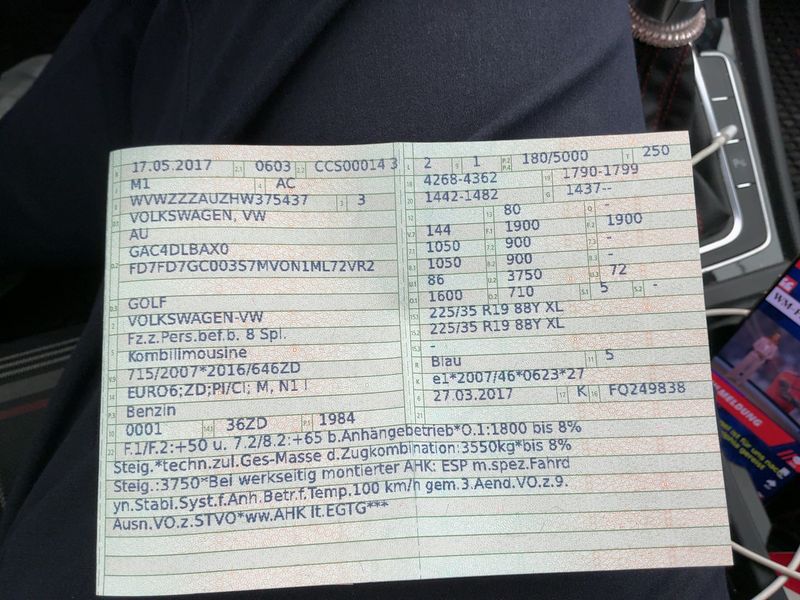 17.05.2017 0603 CCS00014 3
M1 AC
WVWZZZAUZHW375437 3
VOLKSWAGEN, VW
AU
GAC4DLBAX0
FD7FD7GC003S7MVON1ML72VR2
GOLF
VOLKSWAGEN-VW
Fz.z.Pers.bef.b. 8 Spl.
Kombilimousine
715/2007*2016/646ZD
EURO6;ZD;PI/CI; M, N1 I
Benzin
0001 36ZD 1984
2 1 180/5000 250
4268-4362 1790-1799
1442-1482 1437--
80 -
144 1900 1900
1050 900 -
1050 900 -
86 3750 72
1600 710 5 -
225/35 R19 88Y XL
225/35 R19 88Y XL
-
Blau 5
e1*2007/46*0623*27
27.03.2017 K FQ249838
F.1/F.2:+50 u. 7.2/8.2:+65 b.Anhängebetrieb*O.1:1800 bis 8%
Steig.*techn.zul.Ges-Masse d.Zugkombination:3550kg*bis 8%
Steig.:3750*Bei werkseitig montierter AHK: ESP m.spez.Fahrd
yn.Stabi.Syst.f.Anh.Betr.f.Temp.100 km/h gem.3.Aend.VO.z.9.
Ausn.VO.z.STVO*ww.AHK lt.EGTG***
MELDUNG